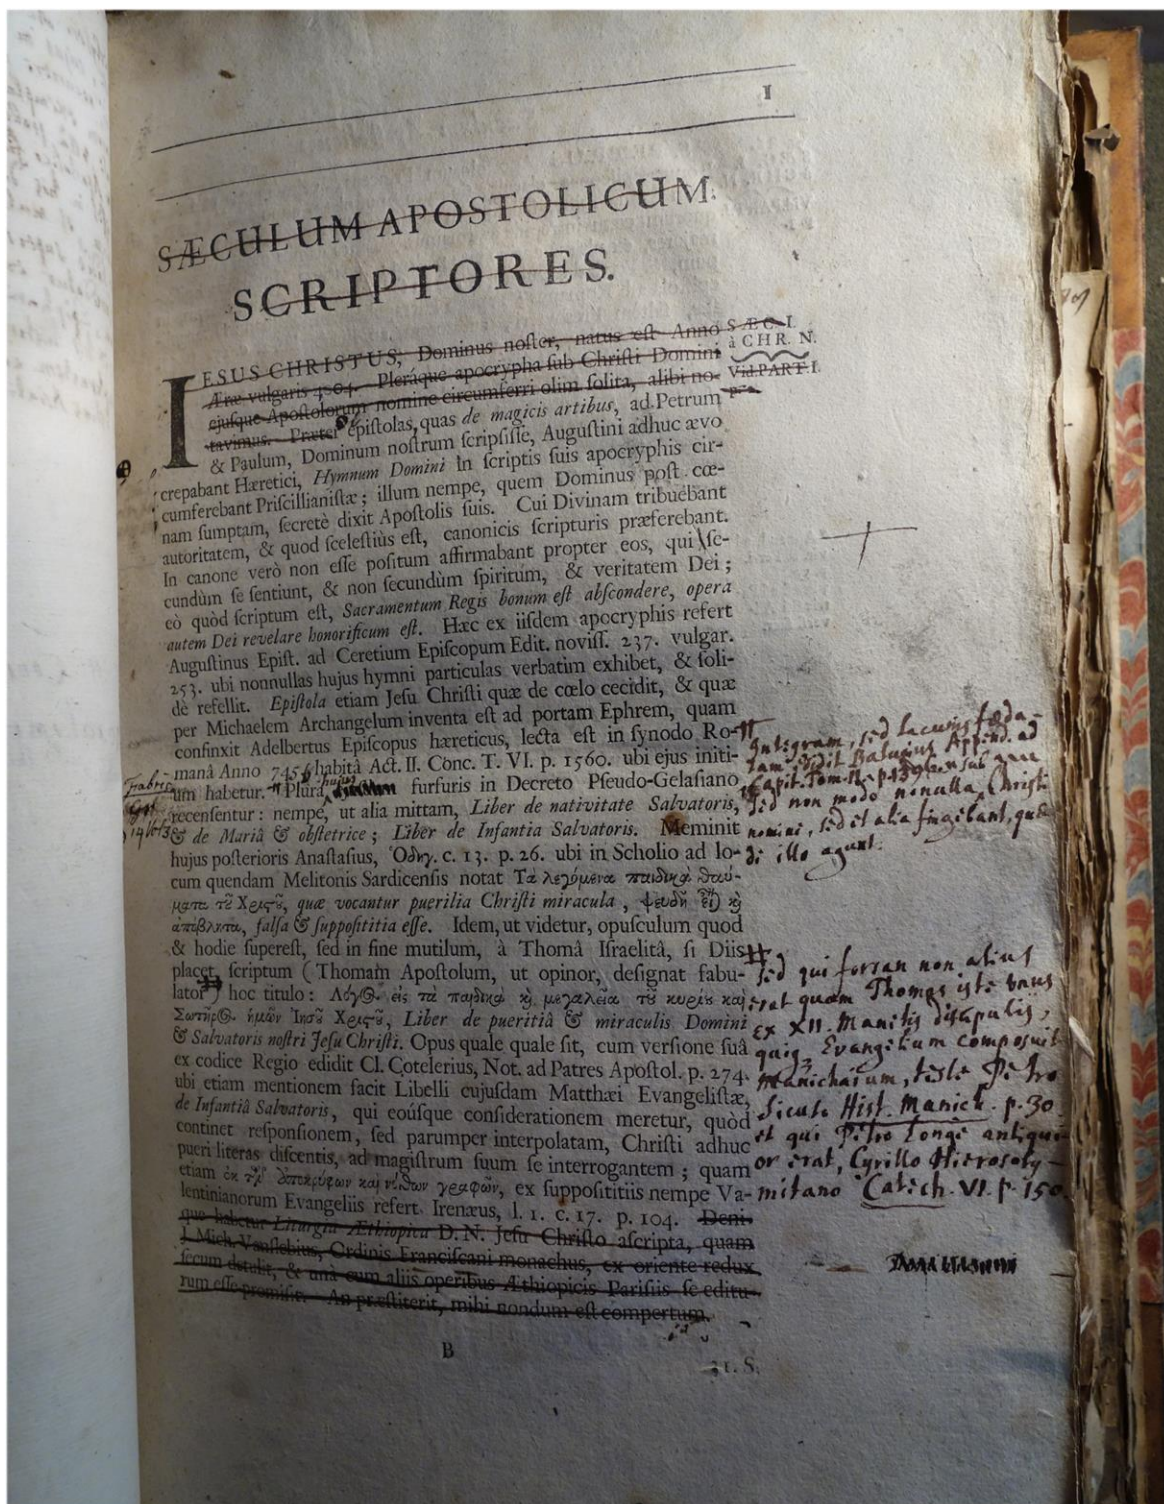 I
SÆCULUM APOSTOLICUM.
SCRIPTORES.
IESUS CHRISTUS, Dominus noſter, natus eſt Anno
Æræ vulgaris 4504. Pleráque apocrypha ſub Chriſti Domini
ejuſque Apoſtolorum nomine circumferri olim ſolita, alibi no-
tavimus. Præter epiſtolas, quas de magicis artibus, ad Petrum
& Paulum, Dominum noſtrum ſcripſiſſe, Auguſtini adhuc ævo
crepabant Hæretici, Hymnum Domini in ſcriptis ſuis apocryphis cir-
cumferebant Priſcillianiſtæ; illum nempe, quem Dominus poſt cœ-
nam ſumptam, ſecretè dixit Apoſtolis ſuis. Cui Divinam tribuebant
autoritatem, & quod ſceleſtiùs eſt, canonicis ſcripturis præferebant.
In canone verò non eſſe poſitum affirmabant propter eos, qui ſe-
cundùm ſe ſentiunt, & non ſecundùm ſpiritum, & veritatem Dei;
eò quòd ſcriptum eſt, Sacramentum Regis bonum eſt abſcondere, opera
autem Dei revelare honorificum eſt. Hæc ex iiſdem apocryphis refert
Auguſtinus Epiſt. ad Ceretium Epiſcopum Edit. noviſſ. 237. vulgar.
253. ubi nonnullas hujus hymni particulas verbatim exhibet, & ſoli-
dè refellit. Epiſtola etiam Jeſu Chriſti quæ de cœlo cecidit, & quæ
per Michaelem Archangelum inventa eſt ad portam Ephrem, quam
confinxit Adelbertus Epiſcopus hæreticus, lecta eſt in ſynodo Ro-
manâ Anno 745 habitâ Act. II. Conc. T. VI. p. 1560. ubi ejus initi-
um habetur. Plura hujus furfuris in Decreto Pſeudo-Gelaſiano
recenſentur: nempe, ut alia mittam, Liber de nativitate Salvatoris,
& de Mariâ & obſtetrice; Liber de Infantia Salvatoris. Meminit
hujus poſterioris Anaſtaſius, Ὁδηγ. c. 13. p. 26. ubi in Scholio ad lo-
cum quendam Melitonis Sardicenſis notat Τὰ λεγόμενα παιδικὰ θαύ-
ματα τȣ͂ Χριςȣ͂, quæ vocantur puerilia Chriſti miracula, ψευδῆ
ἀπόβλητα, falſa & ſuppoſititia eſſe. Idem, ut videtur, opuſculum quod
& hodie ſupereſt, ſed in fine mutilum, à Thomâ Iſraelitâ, ſi Diis
placet, ſcriptum (Thomam Apoſtolum, ut opinor, deſignat fabu-
lator) hoc titulo: Λόγ@. εἰς τὰ παιδικὰ ϗ̀ μεγαλεῖα τȣ͂ κυρίȣ καὶ
Σωτῆρ@. ἡμῶν Ἰησȣ͂ Χριςȣ͂, Liber de pueritiâ & miraculis Domini
& Salvatoris noſtri Jeſu Chriſti. Opus quale quale ſit, cum verſione ſuâ
ex codice Regio edidit Cl. Cotelerius, Not. ad Patres Apoſtol. p. 274.
ubi etiam mentionem facit Libelli cujuſdam Matthæi Evangeliſtæ,
de Infantiâ Salvatoris, qui eoúſque conſiderationem meretur, quòd
continet reſponſionem, ſed parumper interpolatam, Chriſti adhuc
pueri literas diſcentis, ad magiſtrum ſuum ſe interrogantem; quam
etiam ἐκ τῶν ἀποκρύφων καὶ νόθων γραφῶν, ex ſuppoſititiis nempe Va-
lentinianorum Evangeliis refert Irenæus, l. 1. c. 17. p. 104. Deni-
que habetur Liturgia Æthiopica D. N. Jeſu Chriſto aſcripta, quam
J. Mich. Vanſlebius, Ordinis Franciſcani monachus, ex oriente redux
ſecum detulit, & unà cum aliis operibus Æthiopicis Pariſiis ſe editu-
rum eſſe promiſit. An præſtiterit, mihi nondum eſt compertum.
B
SÆC. I.
à CHR. N.
Vid. PART. I.
Integram, sed lacunis fœda-
tam edidit Baluzius Append. ad
Capit. Tom. II. p. 1396
sed non modo nonulla Christi
nomini, sed et alia fingebant, quæ
de illo agunt.
sed qui forsan non alius
erat quam Thomas iste unus
ex XII. Manetis discipulis,
quiq Evangelium composuit
Manichæum, teste Petro
Siculo Hist. Manich. p. 30
et qui Petro longe antiqui-
or erat, Cyrillo Hierosoly-
mitano Catech. VI. p. 150.